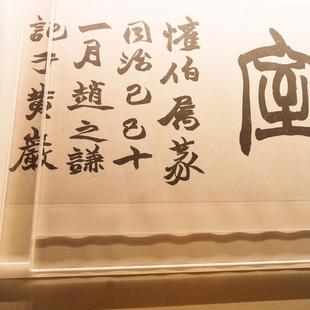 室
懽伯屬篆
同治己巳十
一月趙之謙
記于黃巖